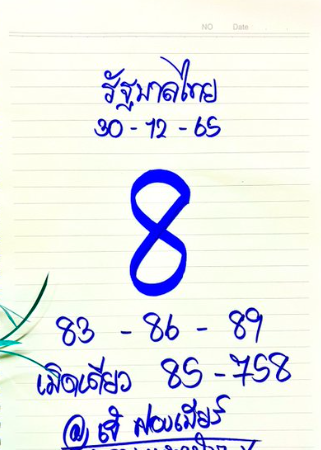 NO Date
รัฐบาลไทย
30-12-65
8
83 - 86 - 89
เม็ดเดียว 85-758
@เจ๊ฟองเบียร์